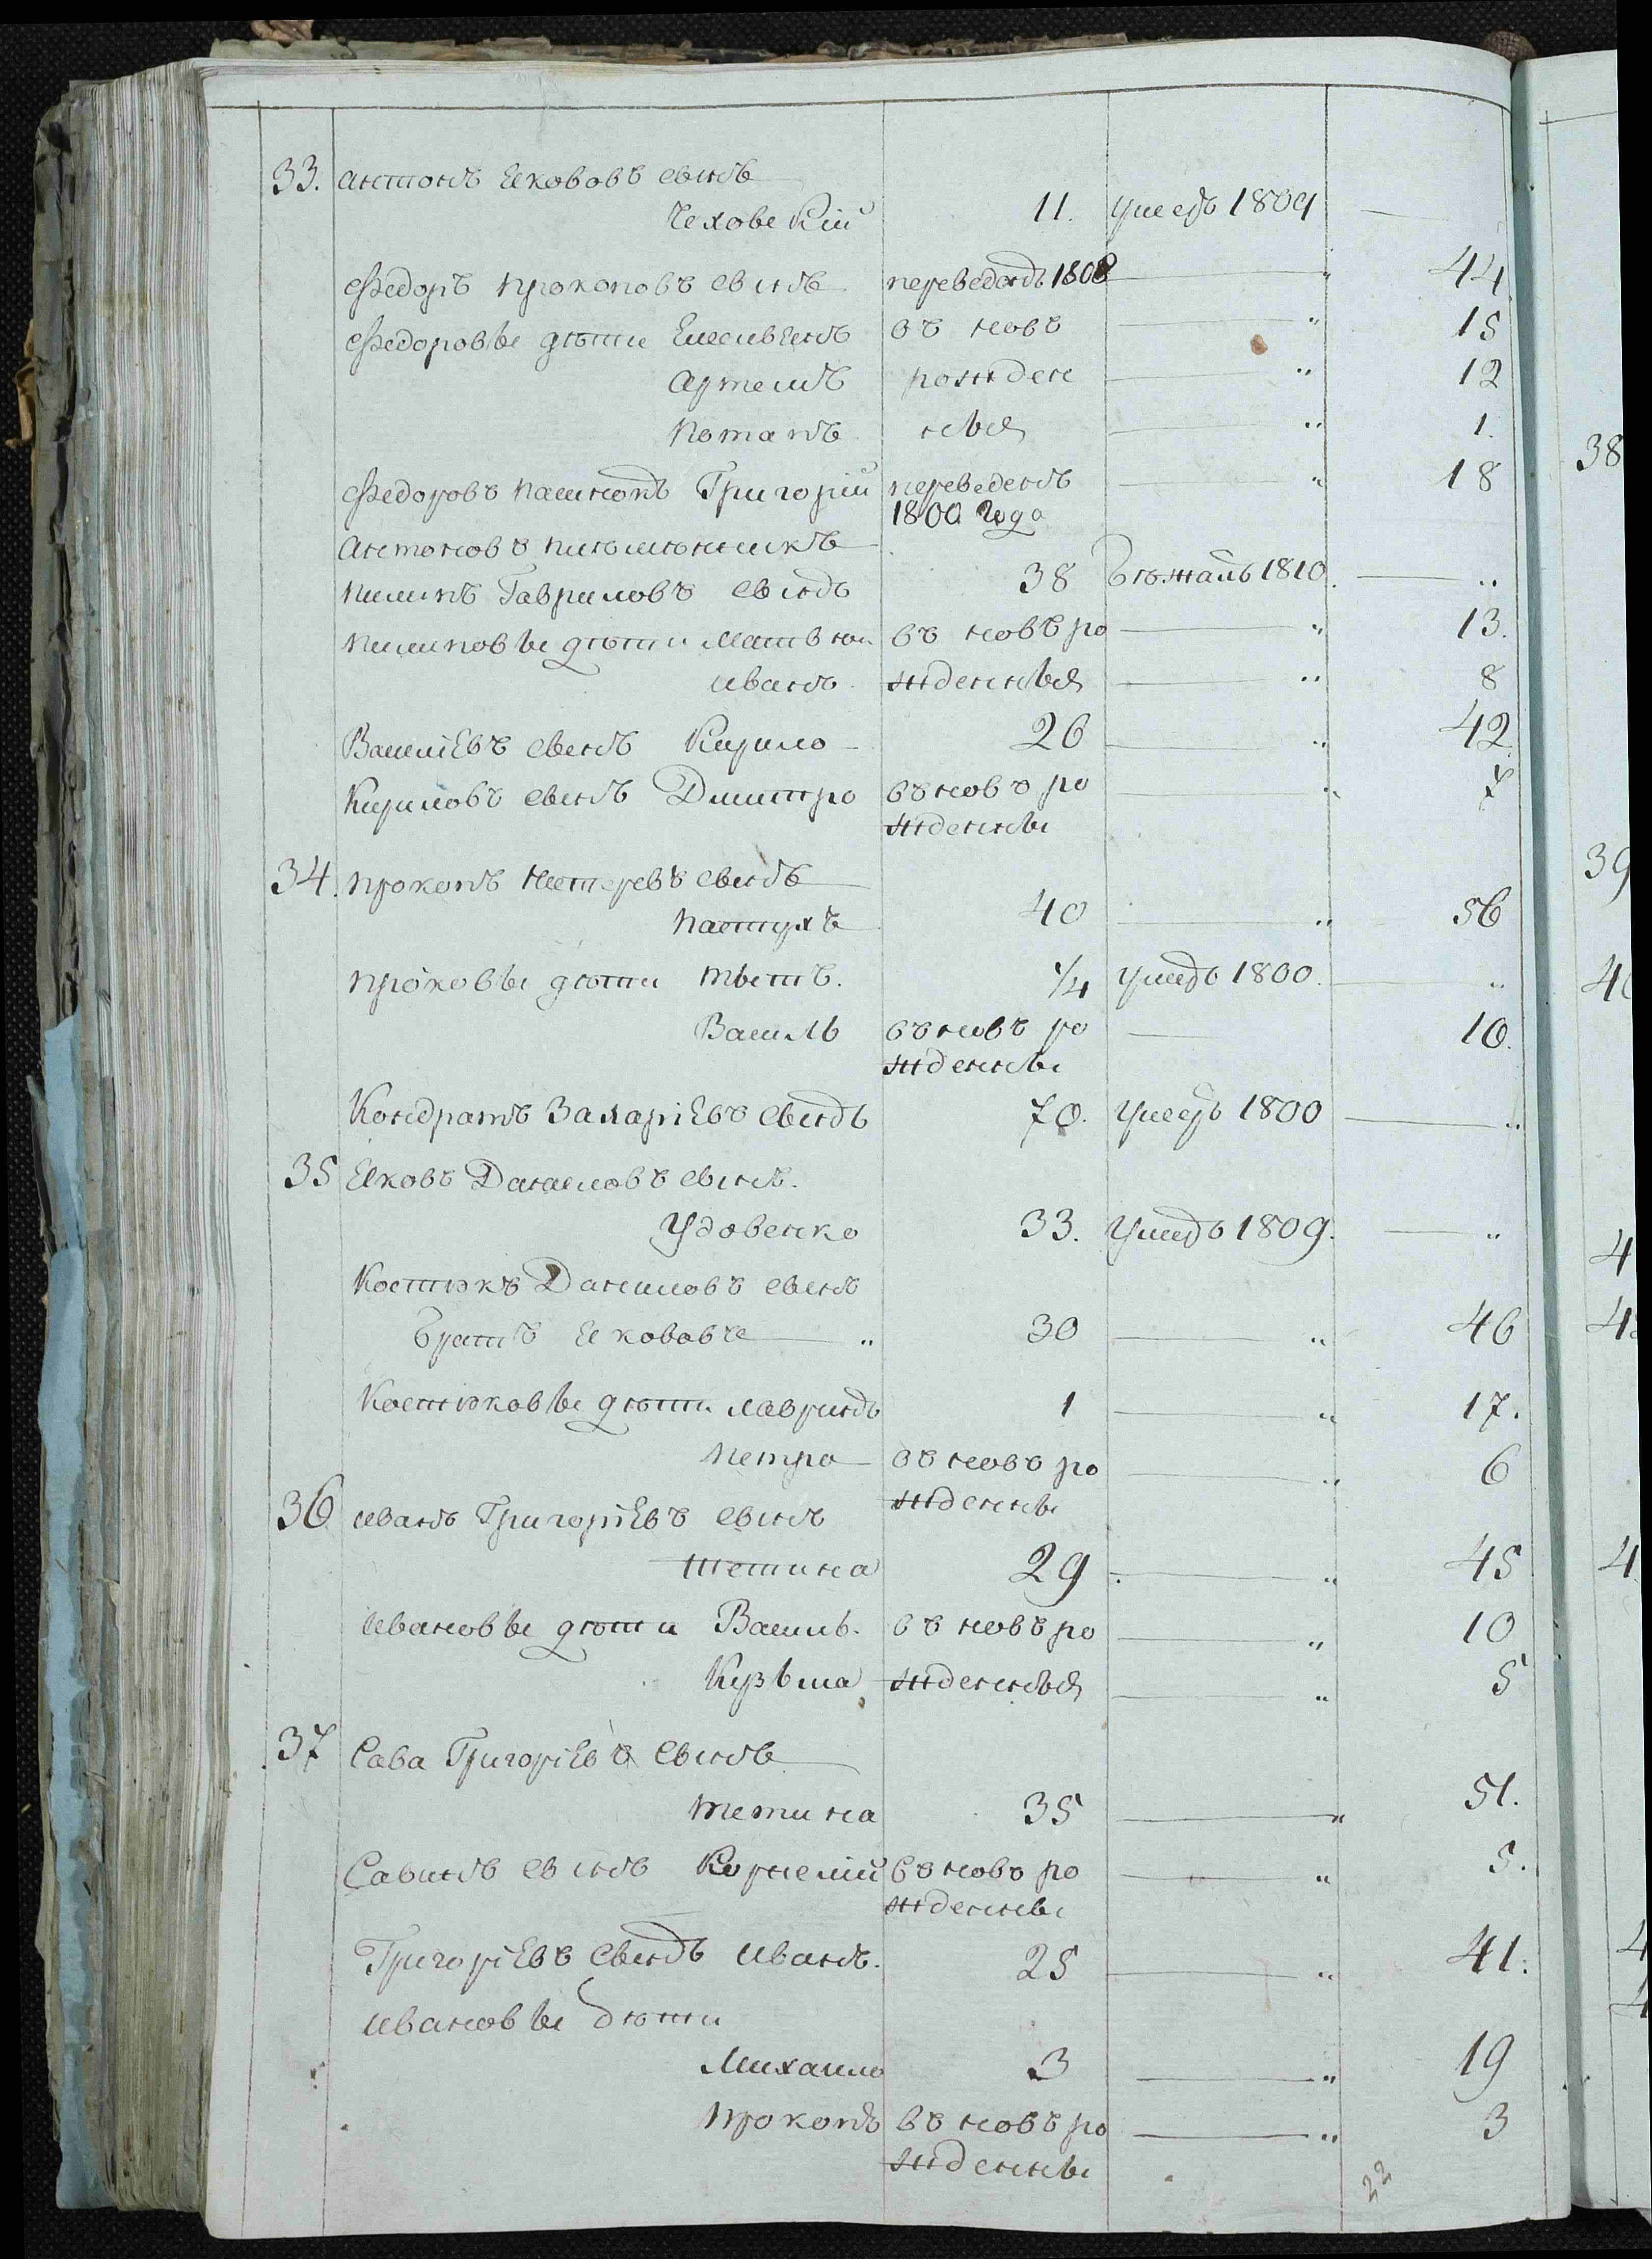 33. Антонъ Якововъ сынъ
Чеховскій 11. умеръ 1809
Федоръ Прокоповъ сынъ переведенъ 1808 „ 44
Федоровы дѣти Емелиянъ въ новъ „ 15
Артемъ рожден „ 12
Потапъ ныя „ 1.
Федоровъ пасинокъ Григорій переведенъ „ 18
1800 года
Антоновъ племѣнникъ
Пилипъ Гавриловъ сынъ 38 бѣжалъ 1810. „
Пилиповы дѣти Матвѣй въ новѣ ро „ 13.
Иванъ жденныя „ 8
Василіевъ сынъ Кирило 26 „ 42
Кириловъ сынъ Дмитро въ новъ ро „ 7
жденны
34. Прокопъ Нестеревъ сынъ
Пастухъ 40 „ 56
Проковы дѣти Титъ. 1/4 умеръ 1800. „
Василь въ новъ ро 10.
жденны
Кондратъ Захаріевъ сынъ 70. умеръ 1800 „
35 Яковъ Данииловъ сынъ.
Удовенко 33. умеръ 1809. „
Костюкъ Даниловъ сынъ
братъ Якововъ „ 30 „ 46
Костюковы дѣти Лавринъ 1 „ 17.
Петро въ новъ ро „ 6
жденны
36 Иванъ Григоріевъ сынъ
Тетина 29 „ 45
Ивановы дѣти Василь. въ новъ ро „ 10
Кузьма жденныя „ 5
37 Сава Григоріевъ сынъ
Тетина 35 „ 51.
Савинъ сынъ Корнелій въ новъ ро „ 3.
жденны
Григоріевъ сынъ Иванъ. 25 „ 41.
Ивановы дѣти
Михаило 3 „ 19
Прокопъ въ новъ ро „ 3
жденны
22
38
39